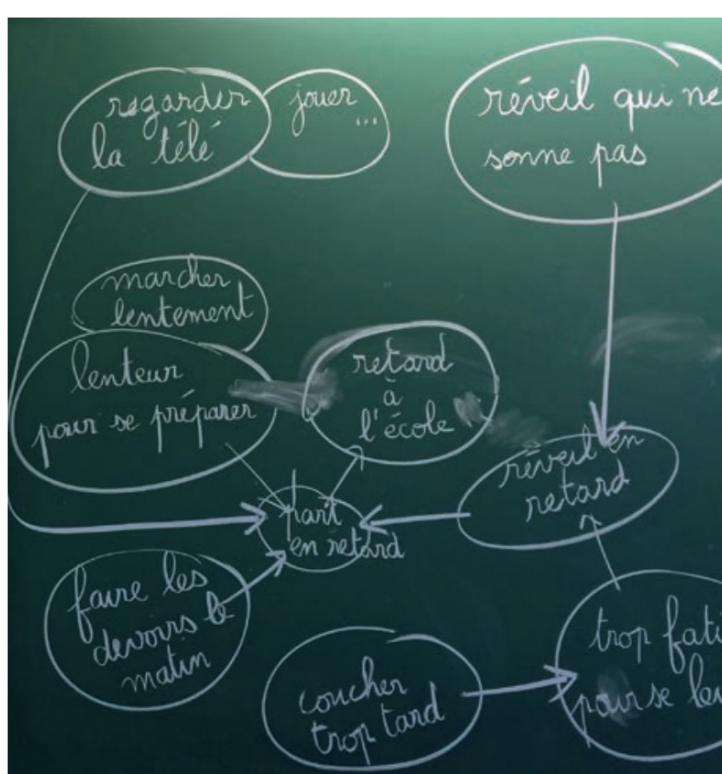 regarder
la télé
jouer
...
réveil qui ne
sonne pas
marcher
lentement
lenteur
pour se préparer
retard
à
l'école
réveil en
retard
part
en retard
faire les
devoirs le
matin
coucher
trop tard
trop
pour se